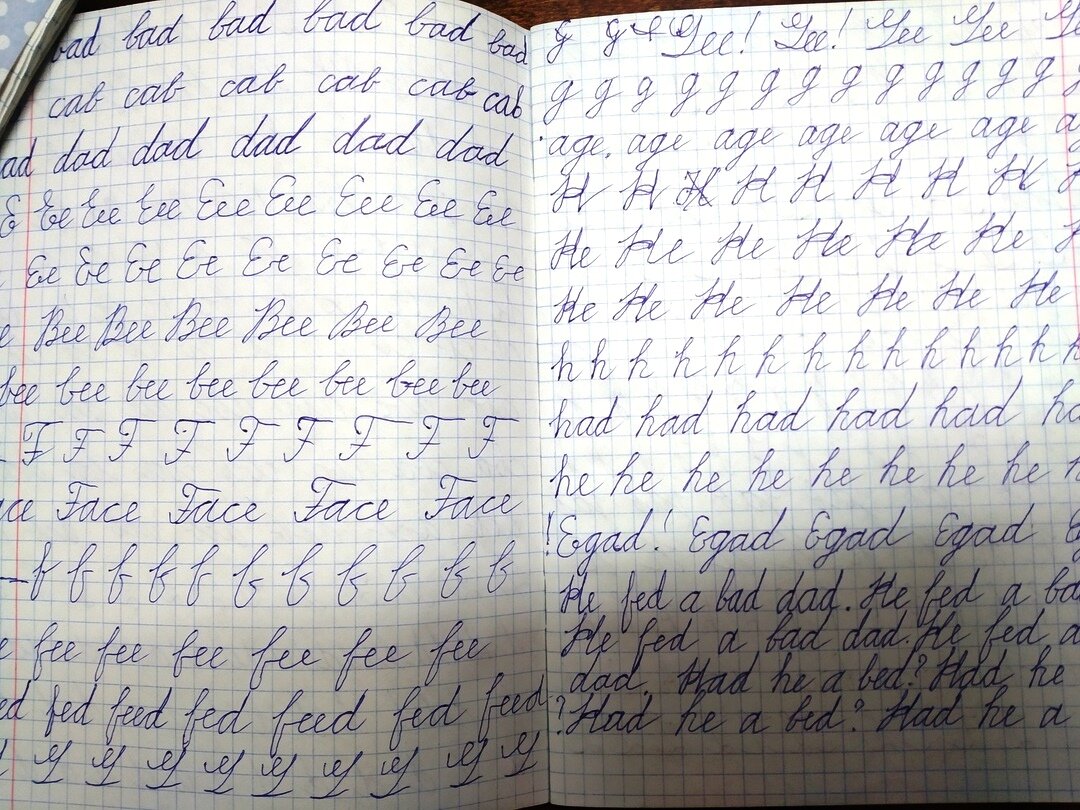 bad bad bad bad bad bad
cab cab cab cab cab cab
dad dad dad dad dad
E Ee Eee Eee Eee Eee Eee Eee Eee
Ee Ee Ee Ee Ee Ee Ee Ee Ee
Bee Bee Bee Bee Bee Bee
bee bee bee bee bee bee bee bee
F F F F F F F F F
Face Face Face Face
f f f f f f f f f f
fee fee fee fee fee fee
fed feed fed feed fed feed
G G G G G G G G G
g g Gee! Gee! Gee Gee
g g g g g g g g g g g g g
age, age age age age age
H H H H H H H H
He He He He He He
He He He He He He He
h h h h h h h h h h h h h
had had had had had
he he he he he he he
! Egad! Egad Egad Egad
He fed a bad dad. He fed a
He fed a bad dad. He fed a
dad. Had he a bed? Had he
? Had he a bed? Had he a